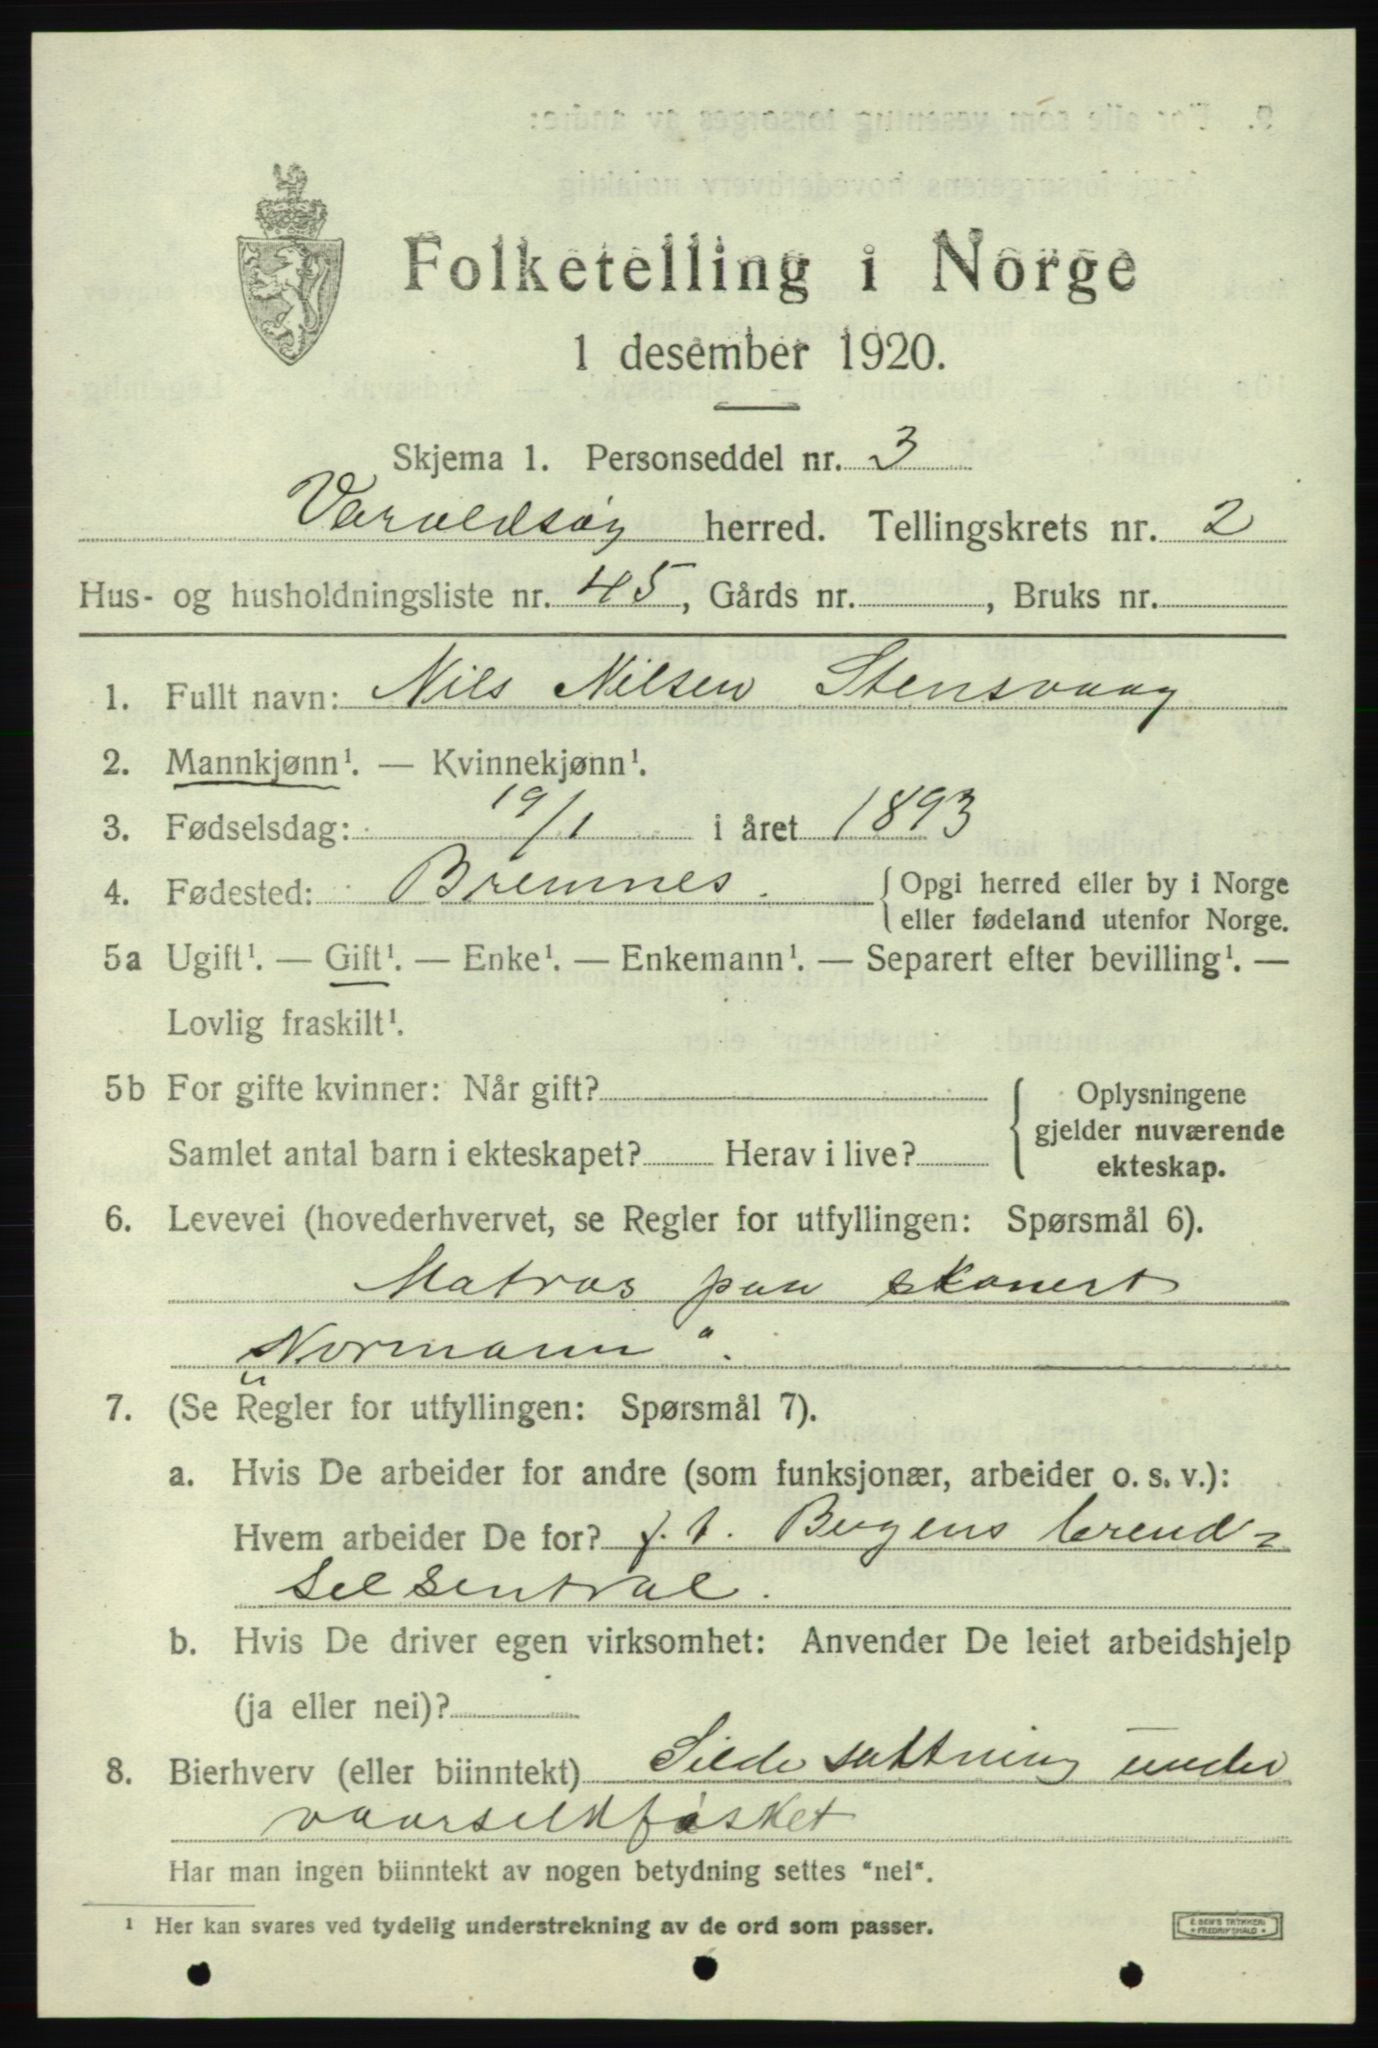 Folketelling i Norge
1 desember 1920.
Skjema 1. Personseddel nr. 3
Varaldsøy herred. Tellingskrets nr. 2
Hus- og husholdningsliste nr. 45, Gårds nr. , Bruks nr.
1. Fullt navn: Nils Nilsen Stensvaag
2. Mannkjønn¹. — Kvinnekjønn¹.
3. Fødselsdag: 19/1 i året 1893
4. Fødested: Bremnes. { Opgi herred eller by i Norge
eller fødeland utenfor Norge.
5a Ugift¹. — Gift¹. — Enke¹. — Enkemann¹. — Separert efter bevilling¹. —
Lovlig fraskilt¹.
5b For gifte kvinner: Når gift? { Oplysningene
gjelder nuværende
Samlet antal barn i ekteskapet? Herav i live?
ekteskap.
6. Levevei (hovederhvervet, se Regler for utfyllingen: Spørsmål 6).
Matros paa skonert
„Normann“.
7. (Se Regler for utfyllingen: Spørsmål 7).
a. Hvis De arbeider for andre (som funksjonær, arbeider o. s. v.):
Hvem arbeider De for? f. t. Bergens brend=
selsentral.
b. Hvis De driver egen virksomhet: Anvender De leiet arbeidshjelp
(ja eller nei)?
8. Bierhverv (eller biinntekt) Silde saltning under
vaarsildfisket
Har man ingen biinntekt av nogen betydning settes "nei".
¹ Her kan svares ved tydelig understrekning av de ord som passer.
E SEM'S TRYKKERI
FREDRIKSHALD